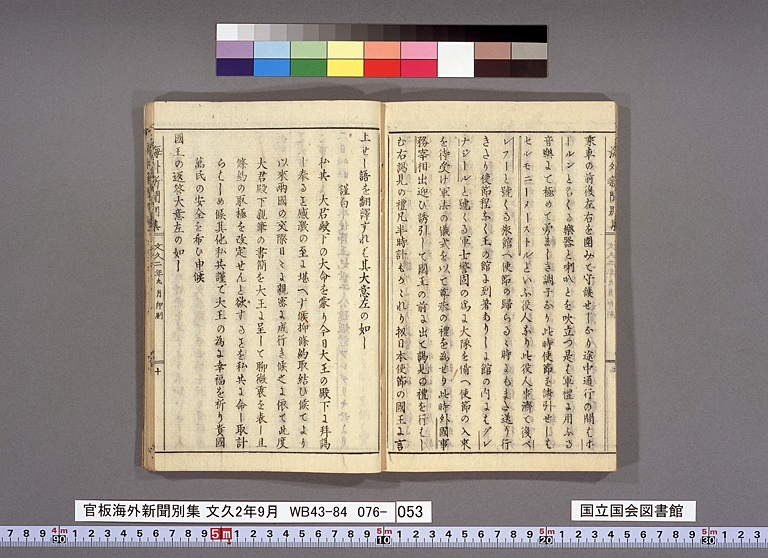 乗車の前後左右を圍みて守護せしなり途中通行の間もホ
ートルンと名くる樂器と喇叭とを吹立つ是も軍禮に用ふる
音樂にて極めて勇ましき調子なり此時使節を誘引せしも
セルモニーメーストルといふ役人なり此役人事濟て後ペ
レフーと號くる旅館へ使節の歸らるゝ時にもまた送り行
きたり使節程なく王の館に到着ありしに館の内にもグレ
ナジールと號くる軍士警固の為に大隊を備へ使節の入來
を待受け軍法の儀式を以て尊敬の禮を為せり此時外國事
務宰相出迎ひ誘引して國王の前に出て謁見の禮を行むし
む右謁見の禮凡半時計もかゝれり扨日本使節の國王に言
上せし語を翻譯すれば其大意左の如し
謹白
私共 大君殿下の大命を蒙り今日大王の殿下に拜謁
し奉ること感激の至に堪へず候抑條約取結び候てより
以來兩國の交際日々に親密に成行き候に依て此度
大君殿下親筆の書簡を大王に呈して聊微衷を表し且
條約の取極を改定せんと欲することを私共に命し取計
らしめ候其他私共謹て大王の為に幸福を祈り貴國
萬民の安全を希ひ申候
國王の返答大意左の如し
海外新聞別集 文久二年九月印刷 十
官板海外新聞別集 文久2年9月 WB43-84 076- 053
国立国会図書館